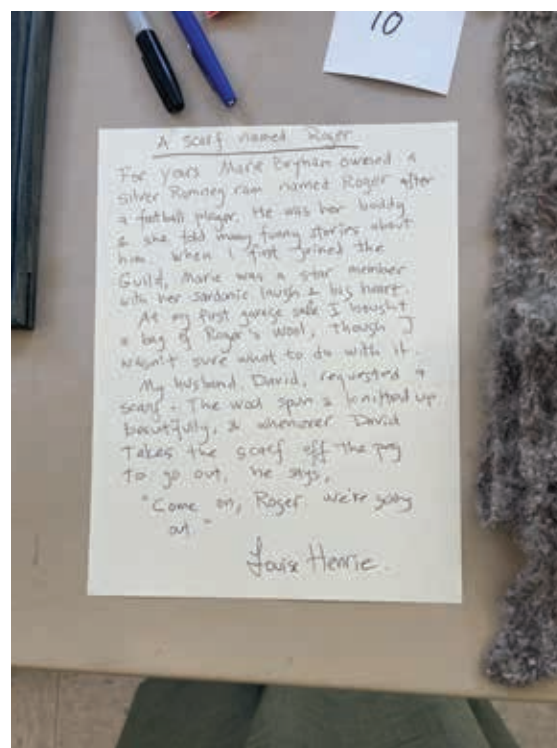 10
A scarf named Roger
For years Marie Bryham owned a
silver Romney ram named Roger after
a football player. He was her buddy
& she told many funny stories about
him. When I first joined the
Guild, Marie was a star member
with her sardonic laugh & big heart.
At my first garage sale I bought
a bag of Roger's wool, though I
wasn't sure what to do with it.
My husband, David, requested a
scarf. The wool spun & knitted up
beautifully, & whenever David
takes the scarf off the peg
to go out, he says,
"Come on, Roger. We're going
out."
Louise Henrie.